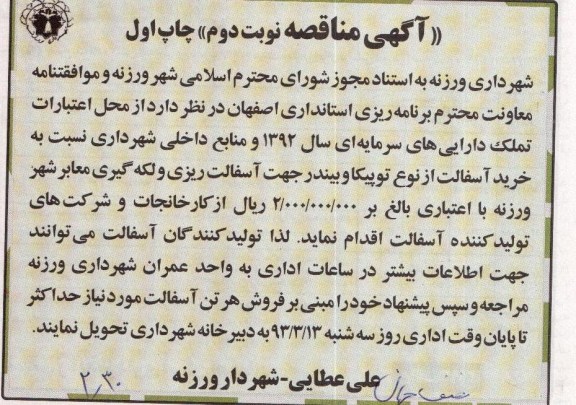 «آگهی مناقصه نوبت دوم» چاپ اول
شهرداری ورزنه به استناد مجوز شورای محترم اسلامی شهر ورزنه و موافقتنامه
معاونت محترم برنامه ریزی استانداری اصفهان در نظر دارد از محل اعتبارات
تملک دارایی های سرمایه ای سال ۱۳۹۲ و منابع داخلی شهرداری نسبت به
خرید آسفالت از نوع توپیکا و بیندر جهت آسفالت ریزی و لکه گیری معابر شهر
ورزنه با اعتباری بالغ بر ۲/۰۰۰/۰۰۰/۰۰۰ ریال از کارخانجات و شرکت های
تولیدکننده آسفالت اقدام نماید. لذا تولیدکنندگان آسفالت می توانند
جهت اطلاعات بیشتر در ساعات اداری به واحد عمران شهرداری ورزنه
مراجعه و سپس پیشنهاد خود را مبنی بر فروش هر تن آسفالت مورد نیاز حداکثر
تا پایان وقت اداری روز سه شنبه ۹۳/۳/۱۳ به دبیرخانه شهرداری تحویل نمایند.
علی عطایی-شهردار ورزنه
۲٫۳۰